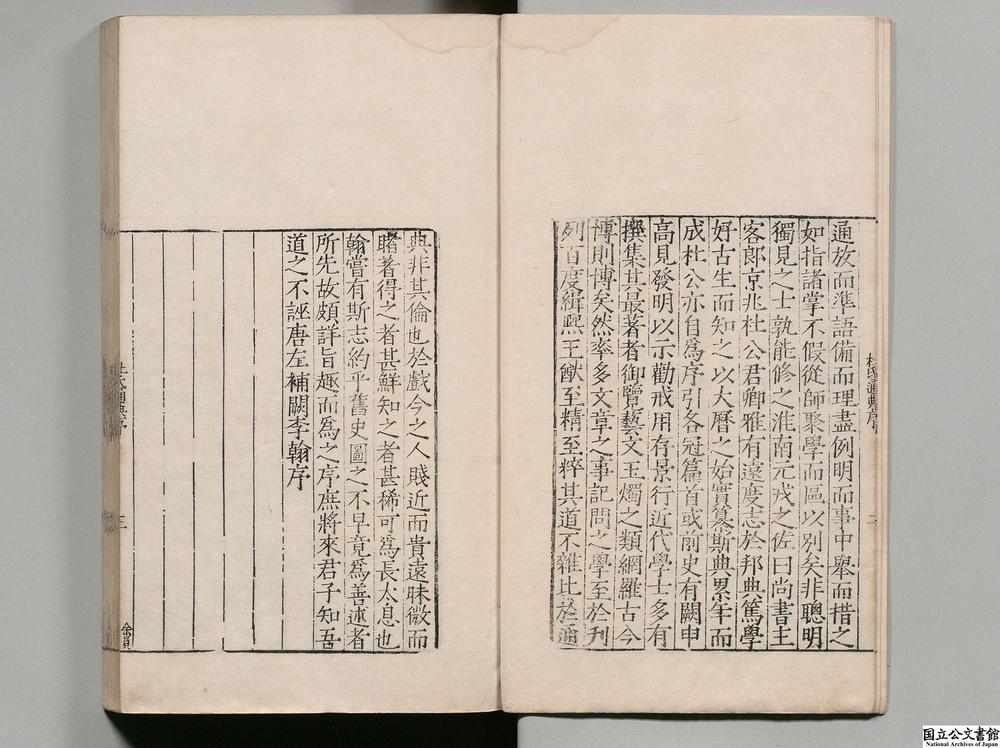 通放而準語備而理盡例明而事中舉而措之
如指諸掌不假從師聚學而區以別矣非聰明
獨見之士孰能修之淮南元戎之佐曰尚書主
客郎京兆杜公君卿雅有遠度志於邦典篤學
好古生而知之以大曆之始實纂斯典累年而
成杜公亦自為序引各冠篇首或前史有闕申
高見發明以示勸戒用存景行近代學士多有
撰集其最著者御覽藝文玉燭之類網羅古今
博則博矣然率多文章之事記問之學至於刋
列百度緝熙王猷至精至粹其道不雜比於通
杜氏通典序
二
典非其倫也於戲今之人賤近而貴遠昧微而
睹著得之者甚鮮知之者甚稀可為長太息也
翰嘗有斯志約乎舊史圖之不早竟為善述者
所先故頗詳旨趣而為之序庶將來君子知吾
道之不誣唐左補闕李翰序
杜氏通典序
三
国立公文書館
National Archives of Japan